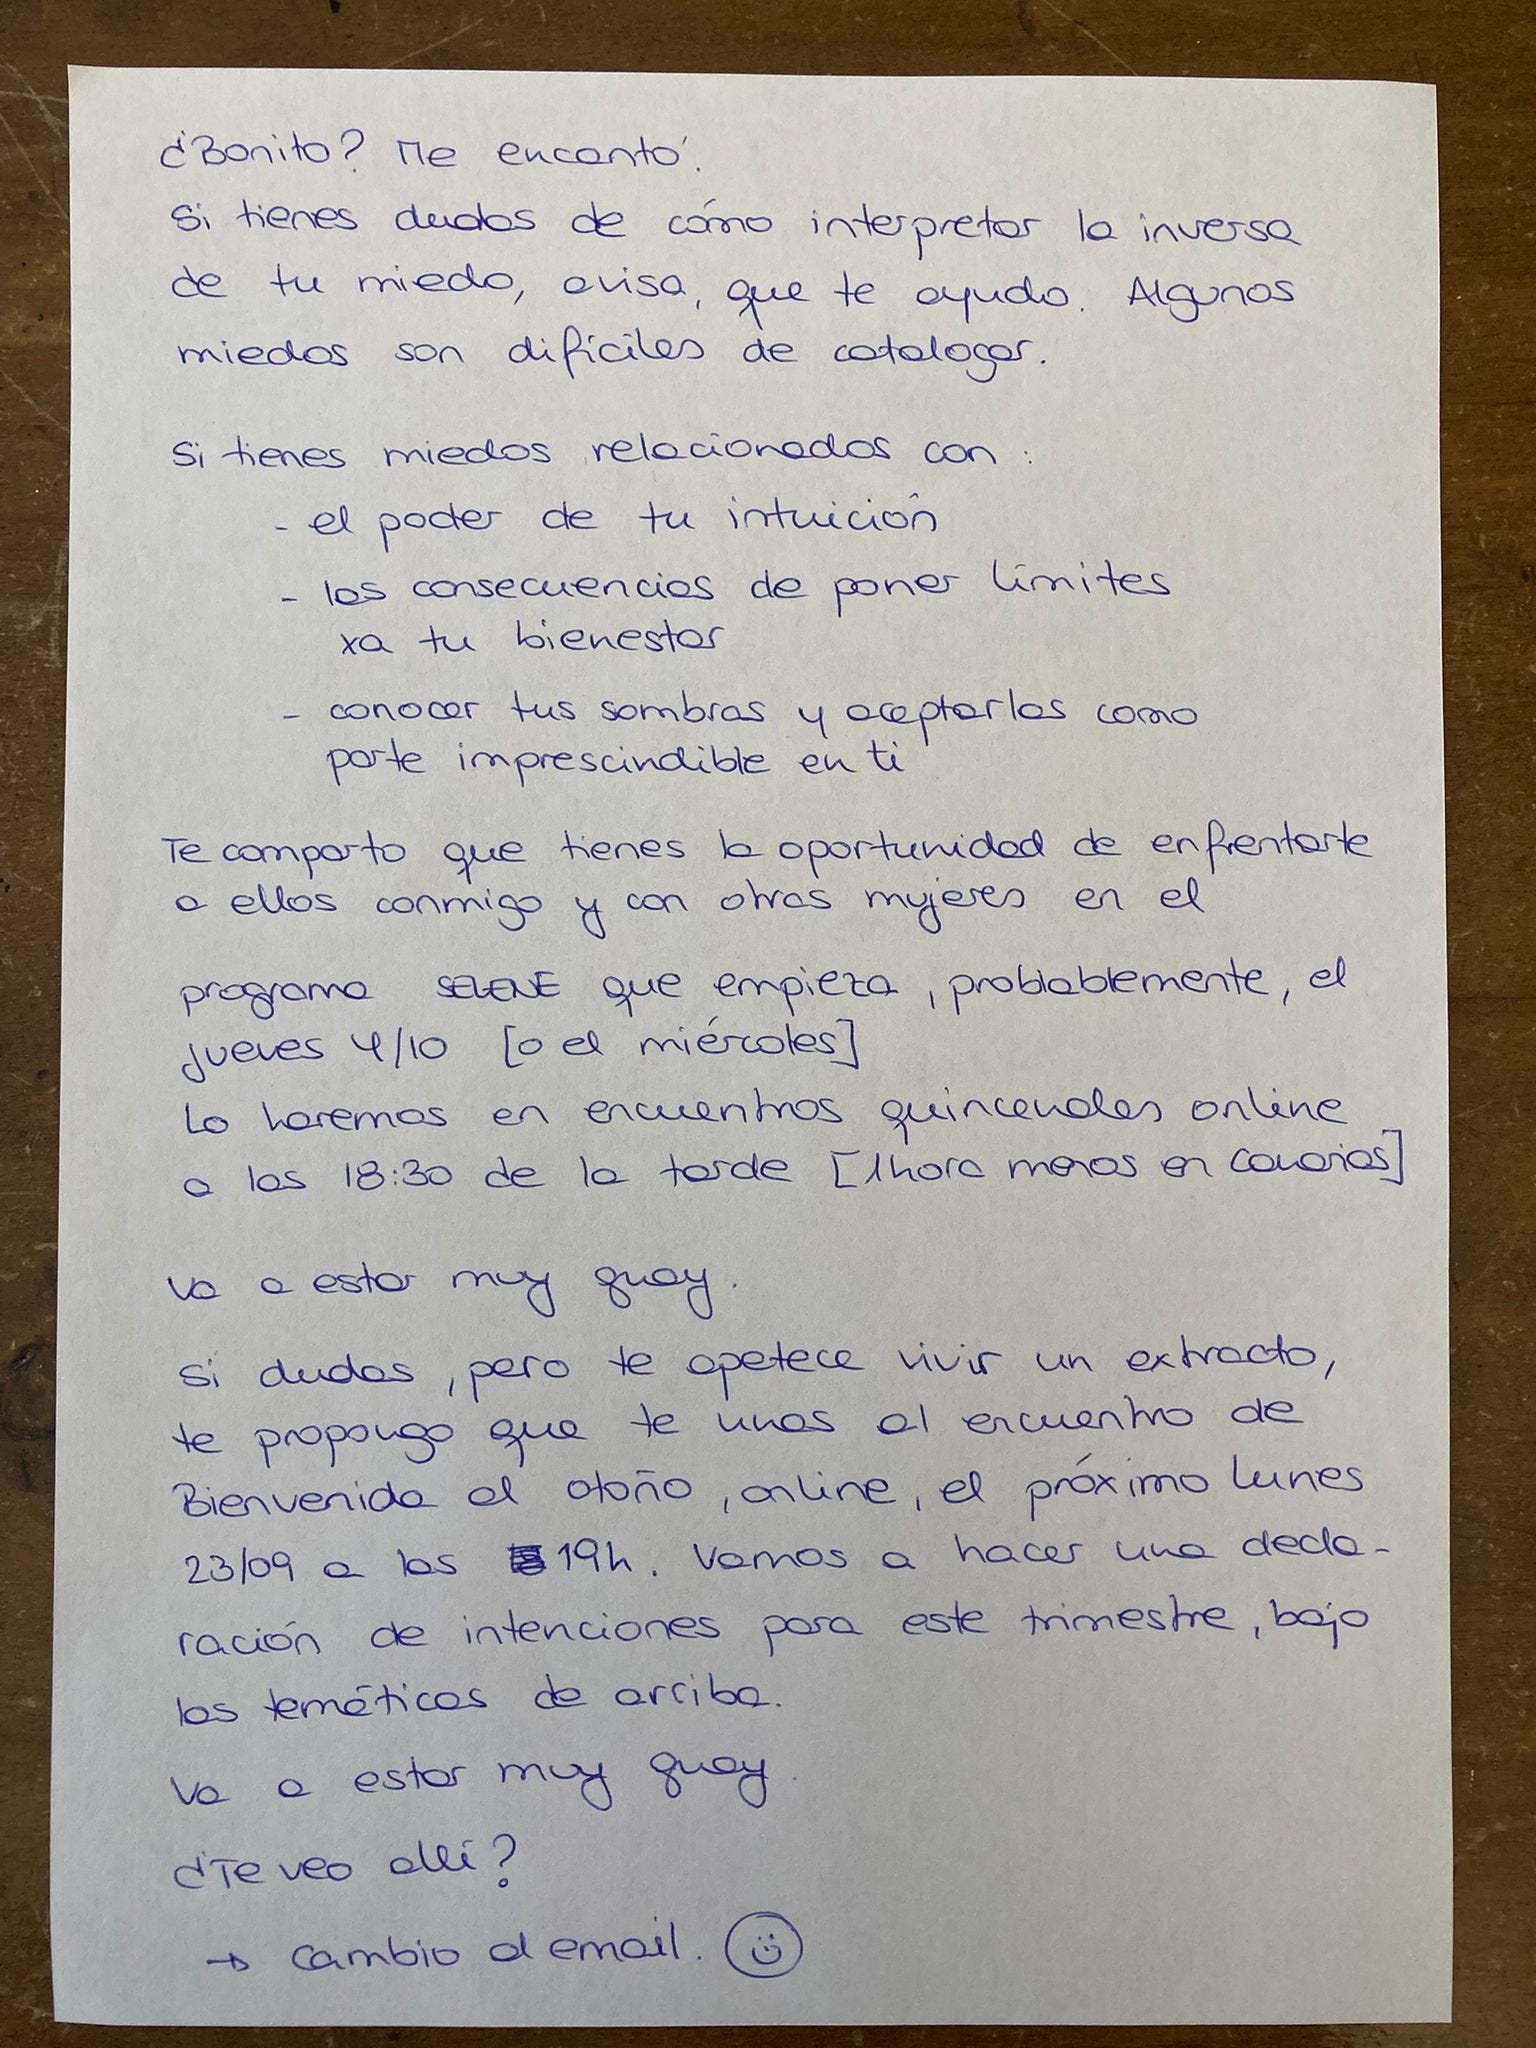 ¿Bonito? Me encantó.
Si tienes dudas de cómo interpretar la inversa
de tu miedo, avisa, que te ayudo. Algunos
miedos son difíciles de catalogar.
Si tienes miedos relacionados con:
- el poder de tu intuición
- las consecuencias de poner límites
xa tu bienestar
- conocer tus sombras y aceptarlas como
parte imprescindible en ti
Te comparto que tienes la oportunidad de enfrentarte
a ellos conmigo y con otras mujeres en el
programa SELENE que empieza, problablemente, el
jueves 4/10 [o el miércoles]
Lo haremos en encuentros quincenales online
a las 18:30 de la tarde [1 hora menos en Canarias]
Va a estar muy guay.
Si dudas, pero te apetece vivir un extracto,
te propongo que te unas al encuentro de
Bienvenida al otoño, online, el próximo lunes
23/09 a las 19h. Vamos a hacer una decla-
ración de intenciones para este trimestre, bajo
las temáticas de arriba.
Va a estar muy guay.
¿Te veo allí?
→ Cambio al email.